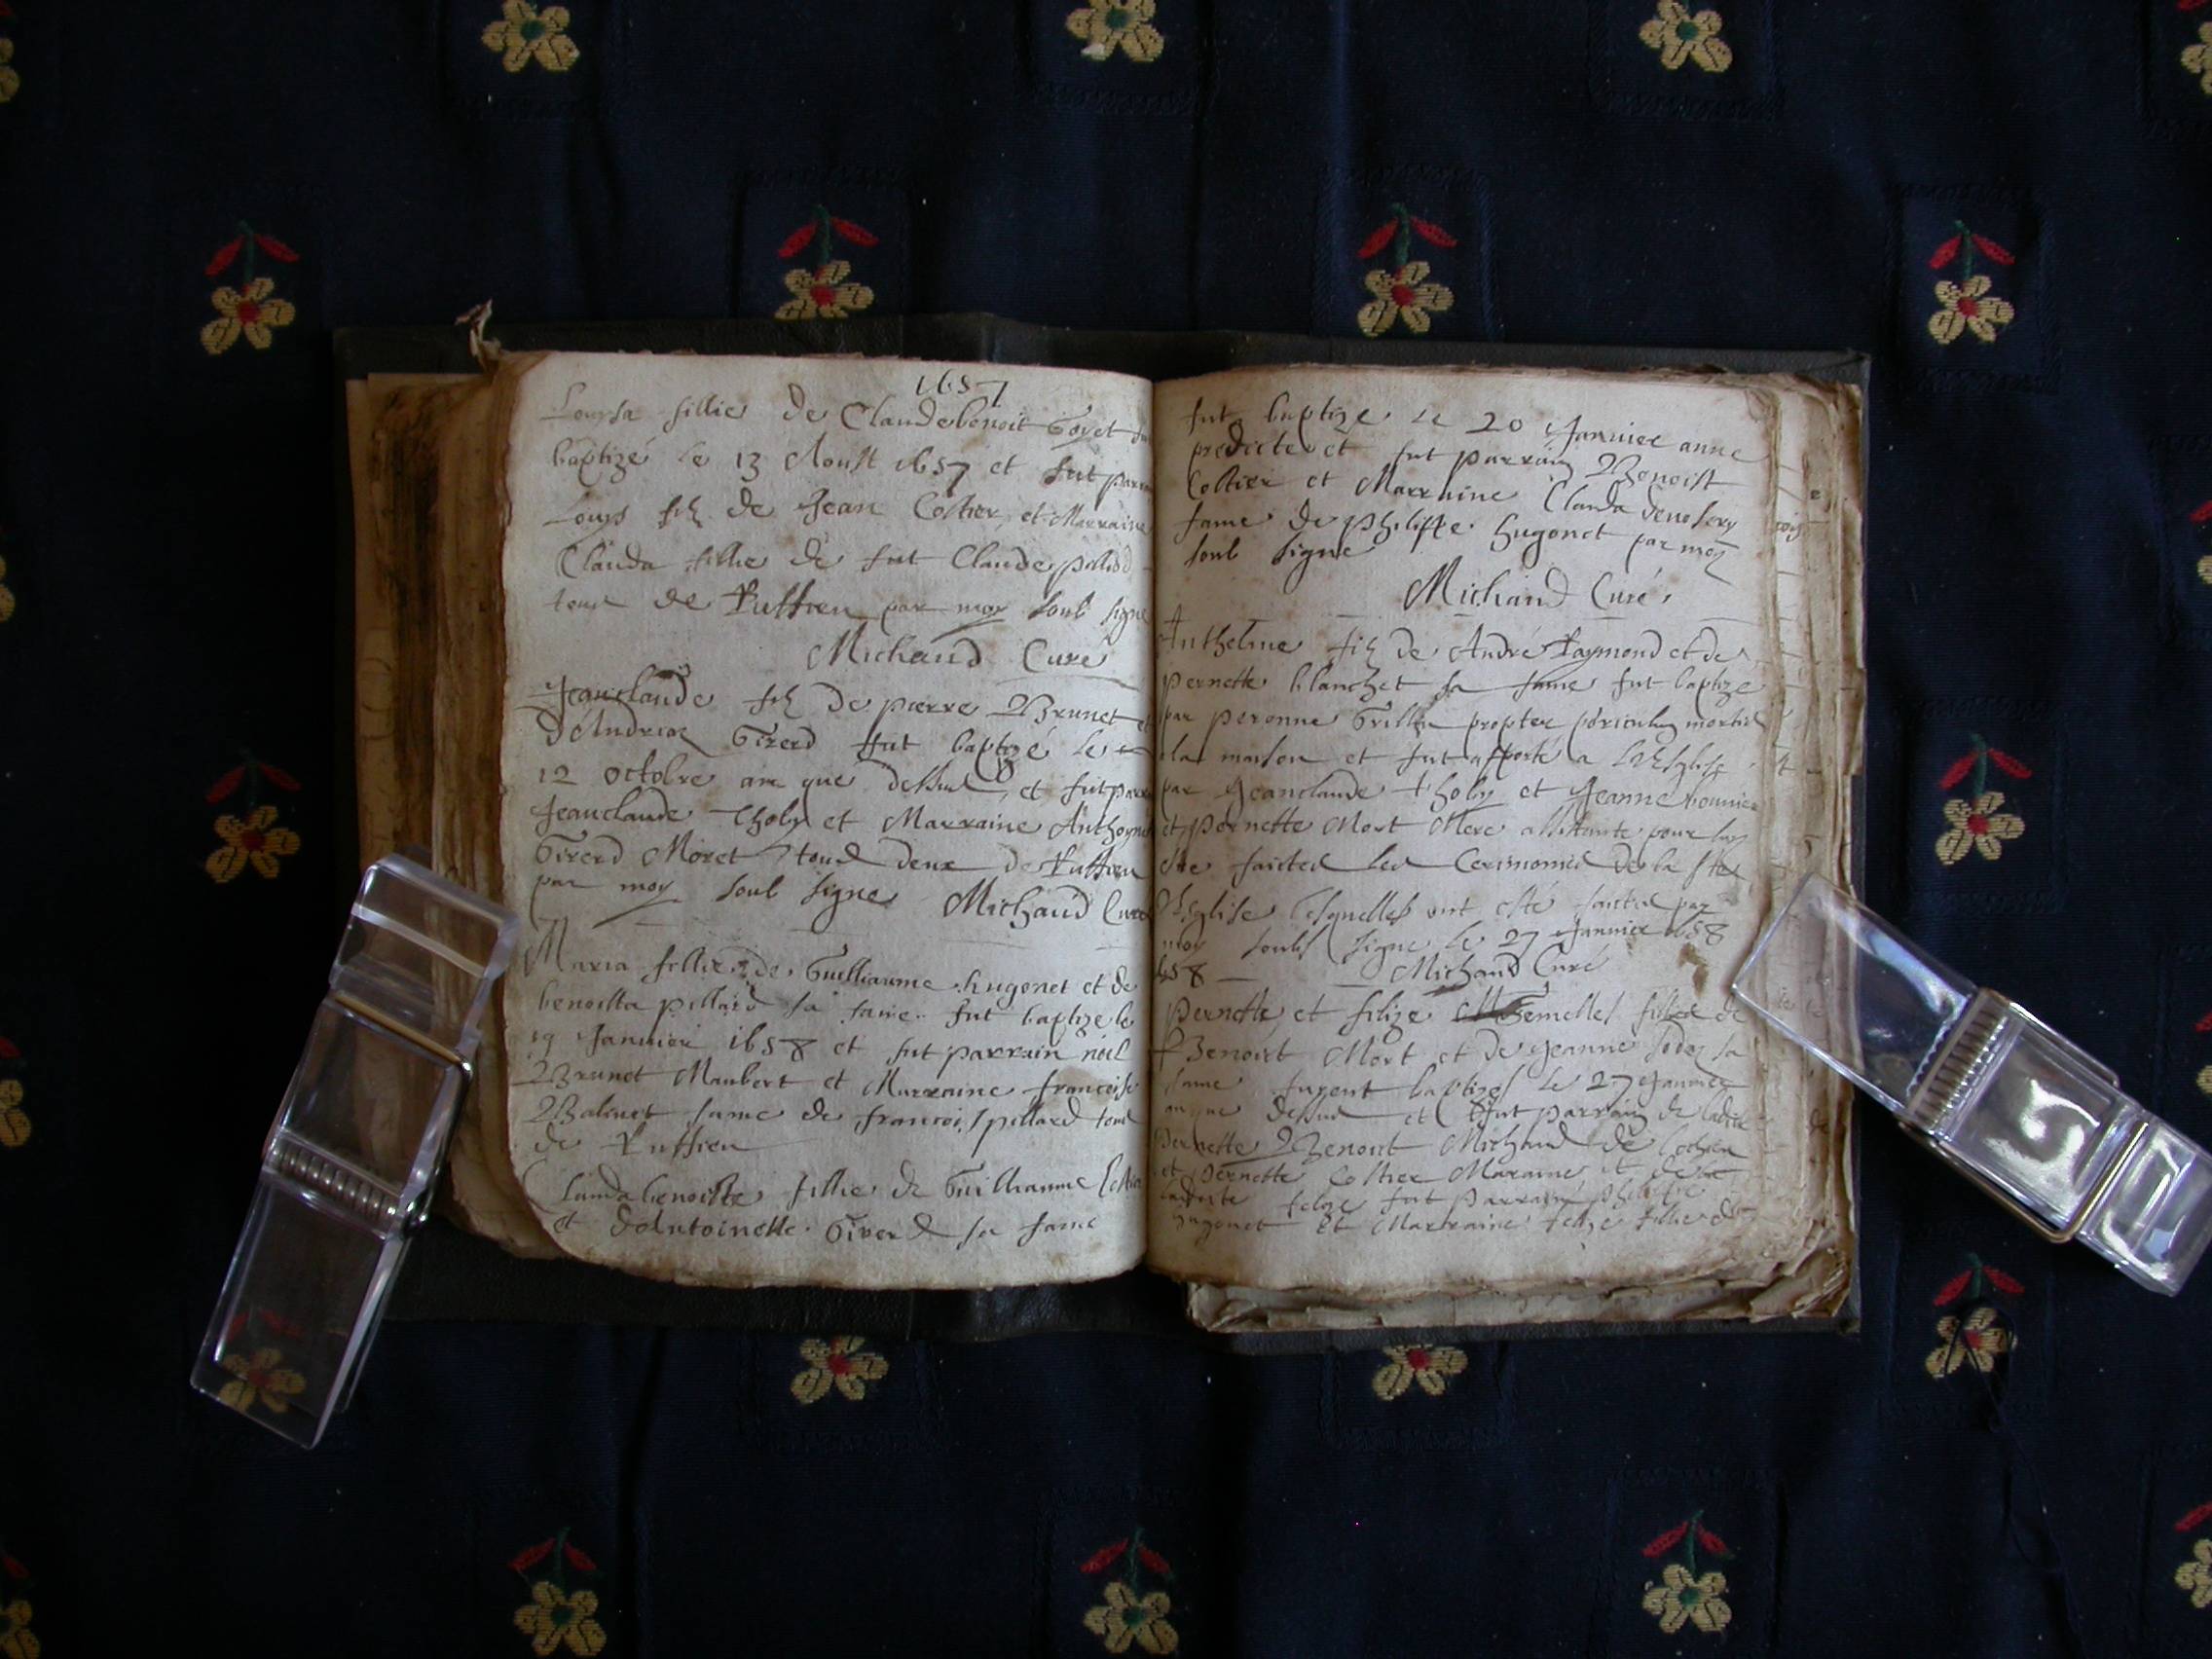 1657
Louysa fillie de Claudebenoit Goyet fut
baptizé le 13 Aoust 1657 et fut parrain
Louys filz de Jean Costier et Marraine
Clauda fillie de fut Claude pillard
tous de Ruffieu par moy soub signe
Michaud Curé
Jeanclaude filz de pierre Brunet et
d'Andrea Girerd fut baptizé le
12 octobre an que dessus, et fut parrain
Jeanclaude Tholy et Marraine Anthoyne
Girerd Moret tous deux de Ruffieu
par moy soub signe Michaud Curé
Maria fillie de Guilliaume hugonet et de
benoitta pillard sa fame fut baptize le
19 Januier 1658 et fut parrain noel
Brunet Maubert et Marraine francoise
Balivet fame de francois pillard tous
de Ruffieu
Claudabenoitte fillie de Guilliaume Costier
et d'Antoinette Girerd sa fame
fut baptize le 20 Januier anne
predicte et fut parrain Benoist
Costier et Marraine Clauda
fame de philippe hugonet par moy
soub signe
Michaud Curé
Anthelme filz de André Raymond et de
pernette blanchet sa fame fut baptize
par peronne Grillu propter periculum mortis
a la maison et fut apporté a l'Esglise
par Jeanclaude tholy et Jeanne bonnier
et pernette Mort Mere assistante pour luy
etre faictes les Cerimonies de la ste
Esglise lesquelles ont esté faictes par
moy soubs signe le 27 Januier 1658
1658 Michaud Curé
pernette et felize Gemelles fillies de
f Benoist Mort et de Jeanne sa
fame furent baptizes le 27 Januier
an que dessus et fut parrain de ladicte
pernette Benoist Michaud de
et pernette Costier Maraine et de
ladicte felize fut parrain philippe
hugonet et Marraine felize fillie de